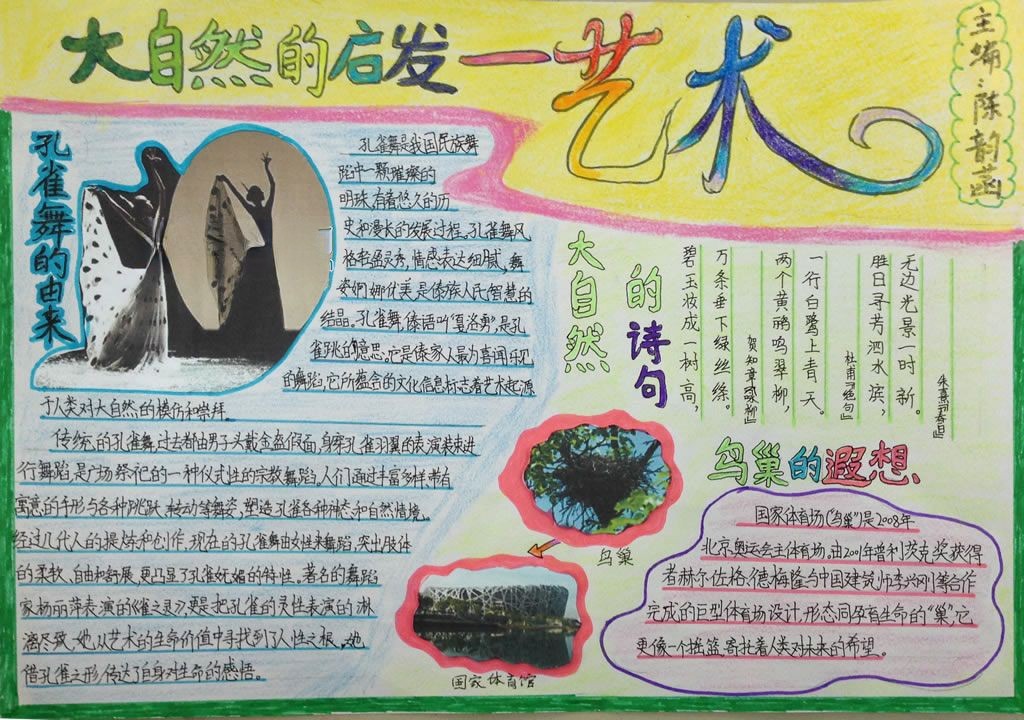 大自然的启发—艺术
主编：陈韵菡
孔雀舞的由来
孔雀舞是我国民族舞
蹈中一颗璀璨的
明珠,有着悠久的历
史和漫长的发展过程。孔雀舞风
格轻盈灵秀,情感表达细腻,舞
姿婀娜优美,是傣族人民智慧的
结晶。孔雀舞,傣语叫“戛洛勇”,是孔
雀跳的意思。它是傣家人最为喜闻乐见
的舞蹈,它所蕴含的文化信息标志着艺术起源
于人类对大自然的模仿和崇拜。
传统的孔雀舞,过去都由男子头戴金盔假面,身穿孔雀羽翼的表演装束进
行舞蹈,是广场祭祀的一种仪式性的宗教舞蹈。人们通过丰富多样带有
寓意的手形与各种跳跃、转动等舞姿,塑造孔雀各种神态和自然情境。
经过几代人的提炼和创作,现在的孔雀舞由女性来舞蹈,突出肢体
的柔软、自由和舒展,更凸显了孔雀妩媚的特性。著名的舞蹈
家杨丽萍表演的《雀之灵》,更是把孔雀的灵性表演的淋
漓尽致,她从艺术的生命价值中寻找到了人性之根。她
借孔雀之形,传达了自身对生命的感悟。
大自然
的诗句
朱熹《春日》
胜日寻芳泗水滨,
无边光景一时新。
杜甫《绝句》
两个黄鹂鸣翠柳,
一行白鹭上青天。
贺知章《咏柳》
碧玉妆成一树高,
万条垂下绿丝绦。
鸟巢
国家体育馆
鸟巢的遐想
国家体育场(“鸟巢”)是2008年
北京奥运会主体育场,由2001年普利茨克奖获得
者赫尔佐格、德梅隆与中国建筑师李兴刚等合作
完成的巨型体育场设计,形态同孕育生命的“巢”,它
更像一个摇篮,寄托着人类对未来的希望。